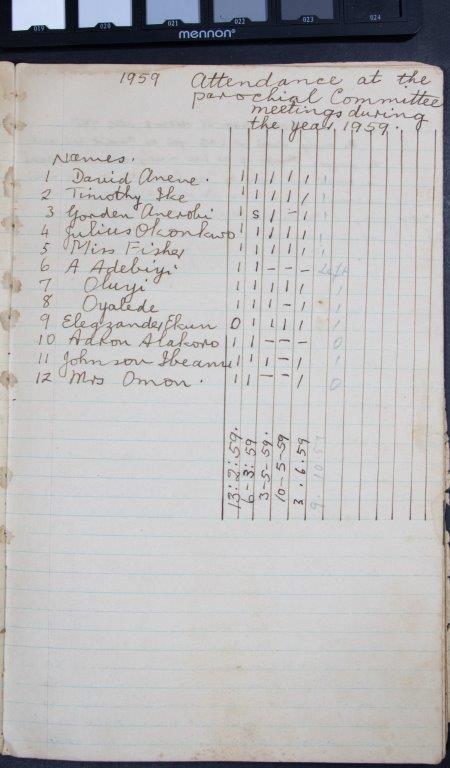 019 020 021 022 023 024
mennon®
1959 Attendance at the
parochial Committee
meetings during
the year 1959.
Names.
1 David Anene. 1 1 1 1 1 1
2 Timothy Ike 1 1 1 1 1 1
3 Gorden Anerobi 1 s 1 - 1 1
4 Julius Okonkwo 1 1 1 1 1 1
5 Miss Fisher 1 1 1 1 1 1
6 A Adebiyi 1 1 - - - Left
7 Oluyi 1 1 1 1 1 1
8 Oyalede 1 1 1 - 1 1
9 Elegzander Ekun 0 1 1 1 1 1
10 Aaron Alakoro 1 1 - - - 0
11 Johnson Ibeanu 1 1 1 - 1 1
12 Mrs Omon. 1 1 - - 1 0
13:2:59.
6-3:59
3-5-59.
10-5-59
3.6.59
9.10.59